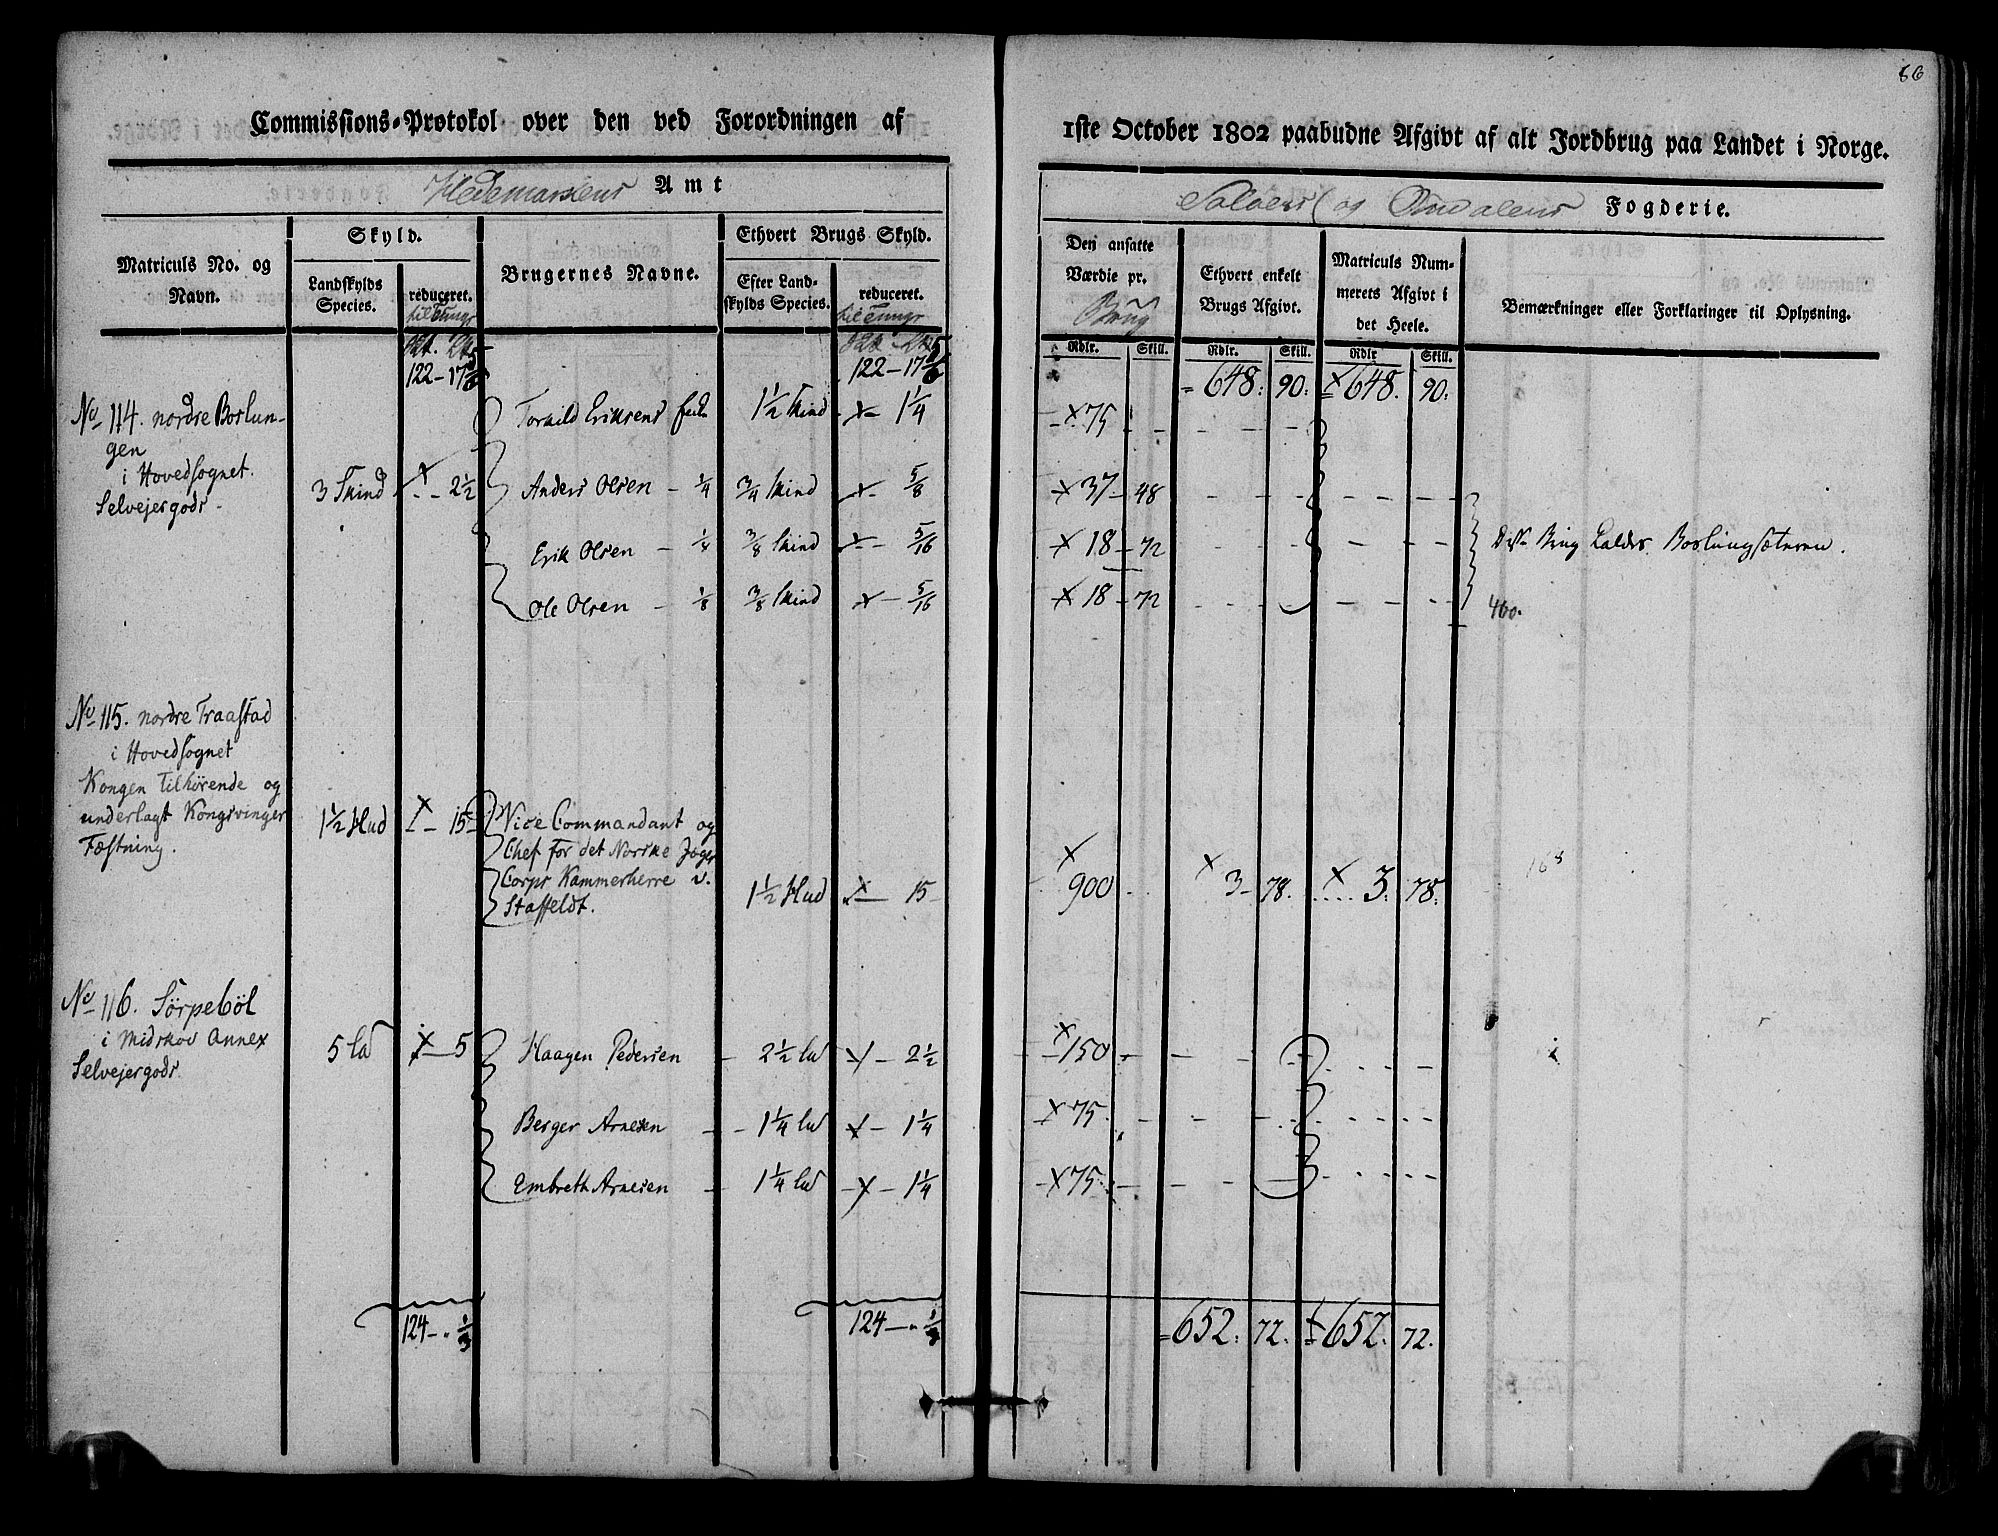 66
Commissions-Protokol over den ved Forordningen af
1ste October 1802 paabudne Afgivt af alt Jordbrug paa Landet i Norge.
Hedemarkens Amt
Soløers og Oudalens Fogderie.
Matriculs No. og Navn.
Skyld.
Landskylds Species.
reduceret.
til Tunge
Brugernes Navne.
Ethvert Brugs Skyld.
Efter Landskylds Species.
reduceret.
til Tunge
Den ansatte Værdie pr.
Brug
Rdlr. Skill.
Ethvert enkelt Brugs Afgivt.
Rdlr. Skill.
Matriculs Nummerets Afgivt i det Heele.
Rdlr Skill.
Bemærkninger eller Forklaringer til Oplysning.
122 - 17 5/6 122 - 17 5/6 648. 90. 648. 90.
No 114. nordre Boslun-
gen
i Hovedsognet.
Selvejergods.
3 Skind 2 1/2
Torkild Eriksens 1 1/2 Skind 1 1/4 75
Anders Olsen - 1/4 3/4 Skind 5/8 37 - 48
Erik Olsen - 1/8 3/8 Skind 5/16 18 - 72 Brug Boslungsæteren.
Ole Olsen - 1/8 3/8 Skind 5/16 18 - 72
460.
No 115. nordre Traastad
i Hovedsognet
Kongen Tilhørende og
underlagt Kongsvinger
Fæstning.
1 1/2 Hud 1 - 15
Vice Commandant og
Chef for det Norske Jæger
Corps Kammerherre v.
Staffeldt.
1 1/2 Hud 15 900 3 - 78. 3. 78.
168
No 116. Sörpeböl
i Midskov Annex
Selvejergods.
5 5
Haagen Pedersen - 2 1/2 - 2 1/2 150
Berger Arnesen - 1 1/4 - 1 1/4 75
Embreth Arnesen - 1 1/4 - 1 1/4 75
124 - . 1/3 124 - . 1/3 652. 72. 652. 72.